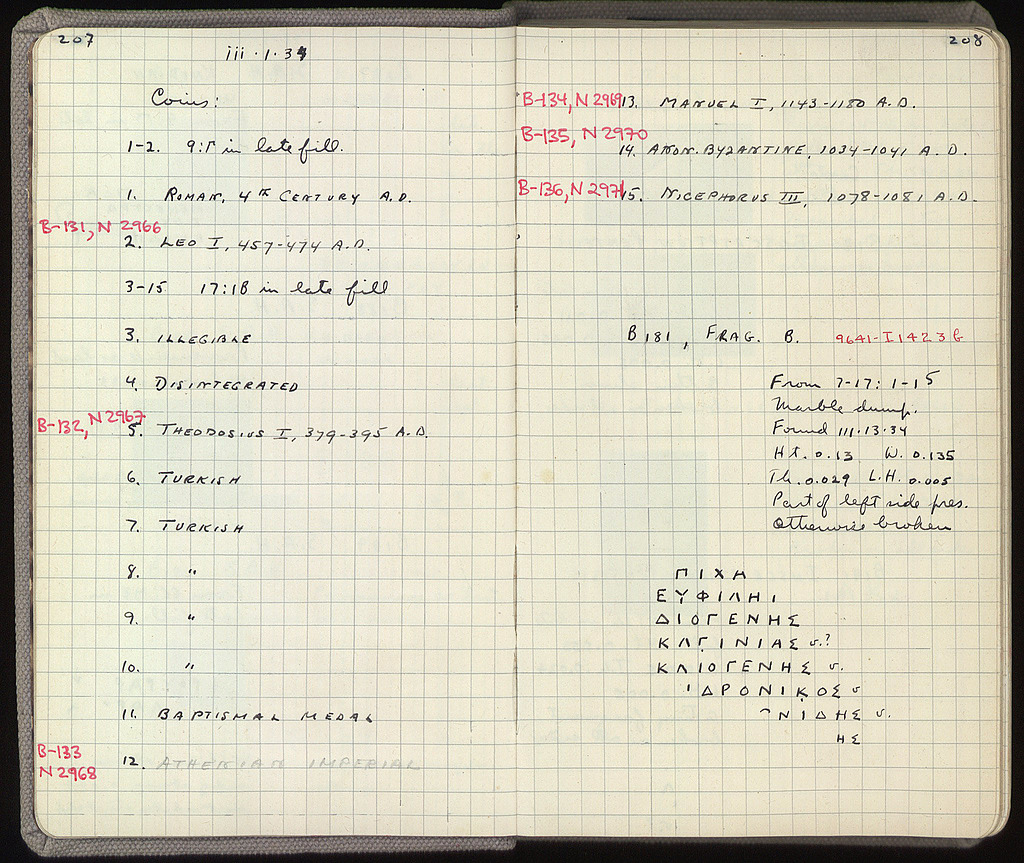 207
iii·1·34
Coins:
1-2. 9:Γ in late fill.
1. ROMAN, 4TH CENTURY A.D.
B-131, N 2966
2. LEO I, 457-474 A.D.
3-15 17:1B in late fill
3. ILLEGIBLE
4. DISINTEGRATED
B-132, N 2967
5. THEODOSIUS I, 379-395 A.D.
6. TURKISH
7. TURKISH
8. "
9. "
10. "
11. BAPTISMAL MEDAL
B-133
N 2968
12. ATHENIAN IMPERIAL
208
B-134, N 2969 13. MANUEL I, 1143-1180 A.D.
B-135, N 2970
14. ANON. BYZANTINE, 1034-1041 A.D.
B-136, N 2971 15. NICEPHORUS III, 1078-1081 A.D.
B 181, FRAG. B. 9641-I 1423 b
From 7-17: 1-15
Marble dump.
Found III·13·34
Ht. 0.13 W. 0.135
Th. 0.029 L.H. 0.005
Part of left side pres.
Otherwise broken
ΠΙΧΗ
ΕΥΦΙΛΗΙ
ΔΙΟΓΕΝΗΣ
ΚΛΓΙΝΙΑΣ v.?
ΚΛΙΟΓΕΝΗΣ v.
ΔΡΟΝΙΚΟΣ v
ΝΙΔΗΣ v.
ΗΣ